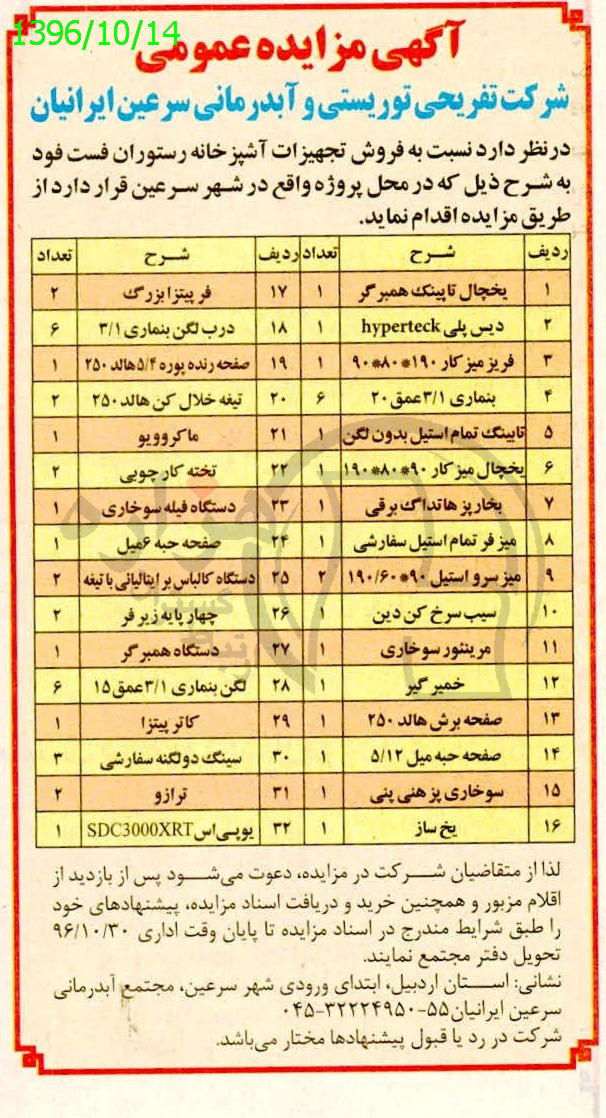 1396/10/14
آگهی مزایده عمومی
شرکت تفریحی توریستی و آبدرمانی سرعین ایرانیان
درنظر دارد نسبت به فروش تجهیزات آشپزخانه رستوران فست فود
به شرح ذیل که در محل پروژه واقع در شهر سرعین قرار دارد از
طریق مزایده اقدام نماید.
ردیف شرح تعداد ردیف شرح تعداد
۱ یخچال تاپینک همبرگر ۱ ۱۷ فر پیتزا بزرگ ۲
۲ دیس پلی hyperteck ۱ ۱۸ درب لگن بنماری ۳/۱ ۶
۳ فریز میز کار ۱۹۰*۸۰*۹۰ ۱ ۱۹ صفحه رنده پوره ۵/۴ هالد ۲۵۰ ۱
۴ بنماری ۳/۱ عمق ۲۰ ۶ ۲۰ تیغه خلال کن هالد ۲۵۰ ۲
۵ تاپینگ تمام استیل بدون لگن ۱ ۲۱ ماکروویو ۱
۶ یخچال میز کار ۹۰*۸۰*۱۹۰ ۱ ۲۲ تخته کار چوبی ۲
۷ بخارپز هاتداگ برقی ۱ ۲۳ دستگاه فیله سوخاری ۱
۸ میز فر تمام استیل سفارشی ۱ ۲۴ صفحه حبه ۶میل ۱
۹ میز سرو استیل ۹۰*۱۹۰/۶۰ ۲ ۲۵ دستگاه کالباس بر ایتالیائی با تیغه ۲
۱۰ سیب سرخ کن دین ۱ ۲۶ چهار پایه زیر فر ۲
۱۱ مرینئور سوخاری ۱ ۲۷ دستگاه همبرگر ۱
۱۲ خمیر گیر ۱ ۲۸ لگن بنماری ۳/۱ عمق ۱۵ ۶
۱۳ صفحه برش هالد ۲۵۰ ۱ ۲۹ کاتر پیتزا ۱
۱۴ صفحه حبه میل ۵/۱۲ ۱ ۳۰ سینگ دو لگنه سفارشی ۳
۱۵ سوخاری پز هنی پنی ۱ ۳۱ ترازو ۲
۱۶ یخ ساز ۱ ۳۲ یوپی‌اس SDC3000XRT ۱
لذا از متقاضیان شرکت در مزایده، دعوت می‌شود پس از بازدید از
اقلام مزبور و همچنین خرید و دریافت اسناد مزایده، پیشنهادهای خود
را طبق شرایط مندرج در اسناد مزایده تا پایان وقت اداری ۹۶/۱۰/۳۰
تحویل دفتر مجتمع نمایند.
نشانی: استان اردبیل، ابتدای ورودی شهر سرعین، مجتمع آبدرمانی
سرعین ایرانیان ۵۵-۳۲۲۲۴۹۵۰-۰۴۵
شرکت در رد یا قبول پیشنهادها مختار می‌باشد.